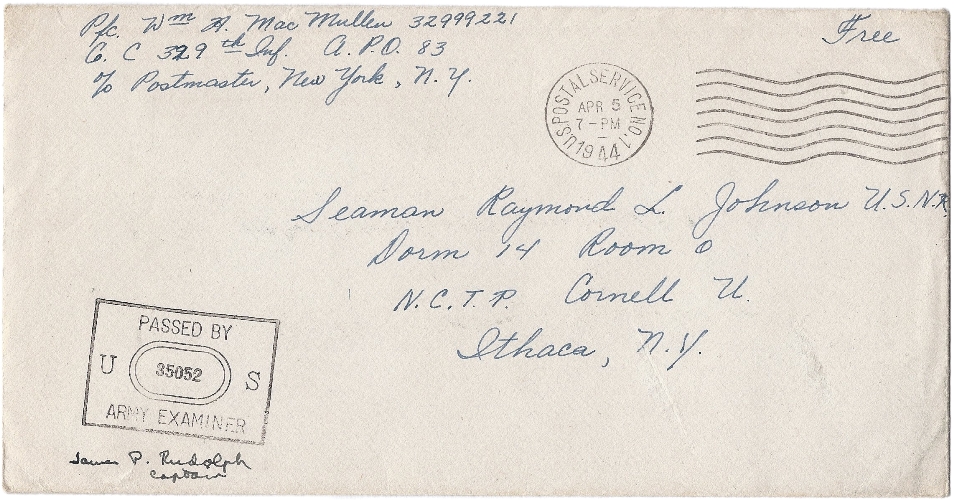 Pfc. Wm H. Mac Mullen 32999221
Co. C 329th Inf. A.P.O. 83
c/o Postmaster, New York, N.Y.
Free
U.S. POSTAL SERVICE NO. 1
APR 5
7-PM
1944
Seaman Raymond L. Johnson U.S.N.R.
Dorm 14 Room 0
N.C.T.P. Cornell U.
Ithaca, N.Y.
PASSED BY
U 35052 S
ARMY EXAMINER
James P. Rudolph
Captain